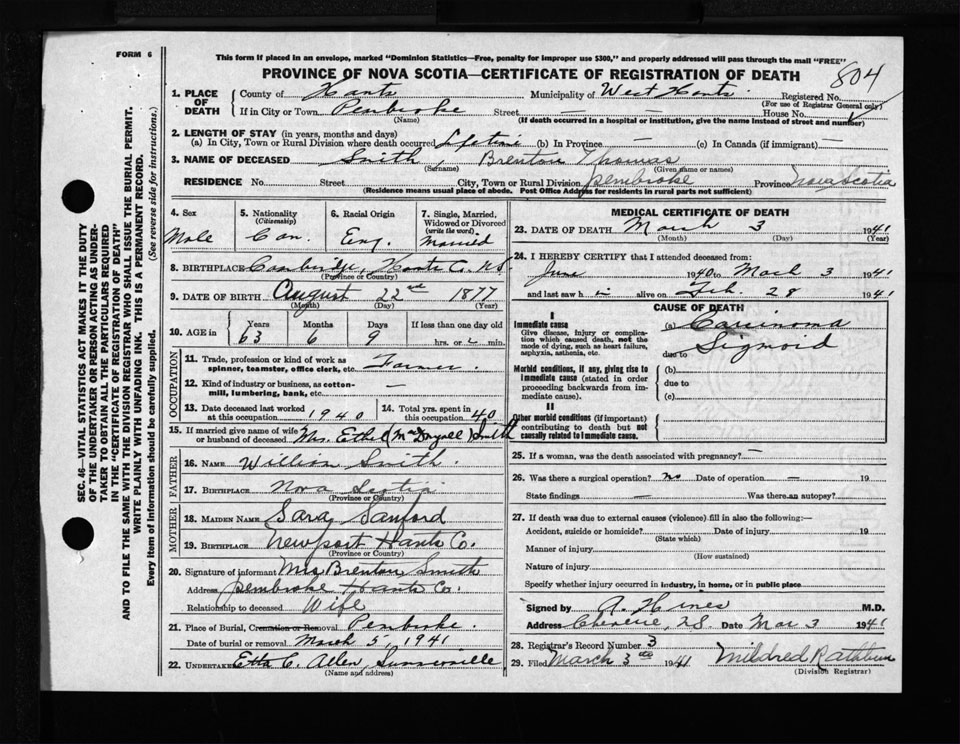 FORM 6
This form if placed in an envelope, marked "Dominion Statistics—Free, penalty for improper use $300," and properly addressed will pass through the mail "FREE"
PROVINCE OF NOVA SCOTIA—CERTIFICATE OF REGISTRATION OF DEATH
804
1. PLACE OF DEATH
County of Hants Municipality of West Hants Registered No.
(For use of Registrar General only)
If in City or Town Pembroke Street — House No.
(Name) (If death occurred in a hospital or institution, give the name instead of street and number)
2. LENGTH OF STAY (in years, months and days)
(a) In City, Town or Rural Division where death occurred Lifetime (b) In Province — (c) In Canada (if immigrant) —
3. NAME OF DECEASED Smith, Brenton Thomas
(Surname) (Given name or names)
RESIDENCE No. Street City, Town or Rural Division Pembroke Province Nova Scotia
(Residence means usual place of abode. Post Office Address for residents in rural parts not sufficient)
4. Sex
Male
5. Nationality
(Citizenship)
Can.
6. Racial Origin
Eng.
7. Single, Married, Widowed or Divorced
(write the word)
Married
8. BIRTHPLACE Cambridge, Hants Co. NS.
(Province or Country)
9. DATE OF BIRTH August 22nd 1877
(Month) (Day) (Year)
10. AGE in
Years Months Days If less than one day old
63 6 9 hrs. or min.
OCCUPATION
11. Trade, profession or kind of work as
spinner, teamster, office clerk, etc. Farmer.
12. Kind of industry or business, as cotton-
mill, lumbering, bank, etc. —
13. Date deceased last worked
at this occupation 1940
14. Total yrs. spent in
this occupation 40
15. If married give name of wife
or husband of deceased Mrs. Ethel Smith
FATHER
16. NAME William Smith.
17. BIRTHPLACE Nova Scotia
(Province or Country)
MOTHER
18. MAIDEN NAME Sara Sanford
19. BIRTHPLACE Newport Hants Co.
(Province or Country)
20. Signature of informant Mrs Brenton Smith
Address Pembroke Hants Co.
Relationship to deceased Wife
21. Place of Burial, Cremation or Removal Pembroke.
Date of burial or removal March 5, 1941
22. UNDERTAKER Etta C. Allen, Summerville
(Name and address)
MEDICAL CERTIFICATE OF DEATH
23. DATE OF DEATH March 3 1941
(Month) (Day) (Year)
24. I HEREBY CERTIFY that I attended deceased from:
June 1940 to March 3 1941
and last saw h im alive on Feb. 28 1941
CAUSE OF DEATH
I
Immediate cause
Give disease, injury or complica-
tion which caused death, not the
mode of dying, such as heart failure,
asphyxia, asthenia, etc.
(a) Carcinoma
Sigmoid
due to
Morbid conditions, if any, giving rise to
immediate cause (stated in order
proceeding backwards from im-
mediate cause).
(b)
due to
(c)
II
Other morbid conditions (if important)
contributing to death but not
causally related to immediate cause.
25. If a woman, was the death associated with pregnancy? —
26. Was there a surgical operation? no Date of operation — 19
State findings — Was there an autopsy?
27. If death was due to external causes (violence) fill in also the following:—
Accident, suicide or homicide? Date of injury 19
(State which)
Manner of injury
(How sustained)
Nature of injury
Specify whether injury occurred in industry, in home, or in public place
Signed by A. Hines M.D.
Address Cheverie, N.S. Date Mar 3 1941
28. Registrar's Record Number 3
29. Filed March 3rd 1941 Mildred Rathbun
(Division Registrar)
SEC. 46—VITAL STATISTICS ACT MAKES IT THE DUTY
OF THE UNDERTAKER OR PERSON ACTING AS UNDER-
TAKER TO OBTAIN ALL THE PARTICULARS REQUIRED
IN THE "CERTIFICATE OF REGISTRATION OF DEATH"
AND TO FILE THE SAME WITH THE DIVISION REGISTRAR WHO SHALL ISSUE THE BURIAL PERMIT.
WRITE PLAINLY WITH UNFADING INK. THIS IS A PERMANENT RECORD.
Every item of Information should be carefully supplied. (See reverse side for instructions.)